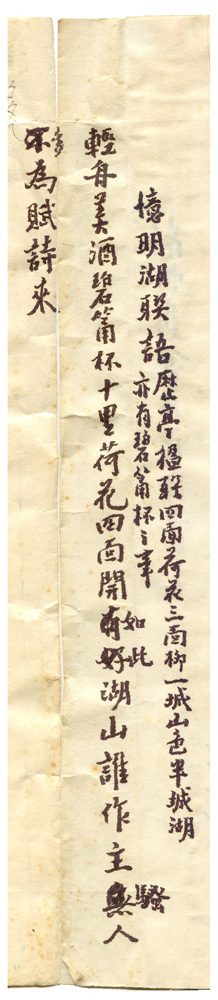 憶明湖聯語
歷亭楹聯四面荷花三面柳一城山色半城湖
亦有碧筩杯之事
輕舟美酒碧筩杯十里荷花四面開有好湖山誰作主無人
如此
騷
不為賦詩來
多